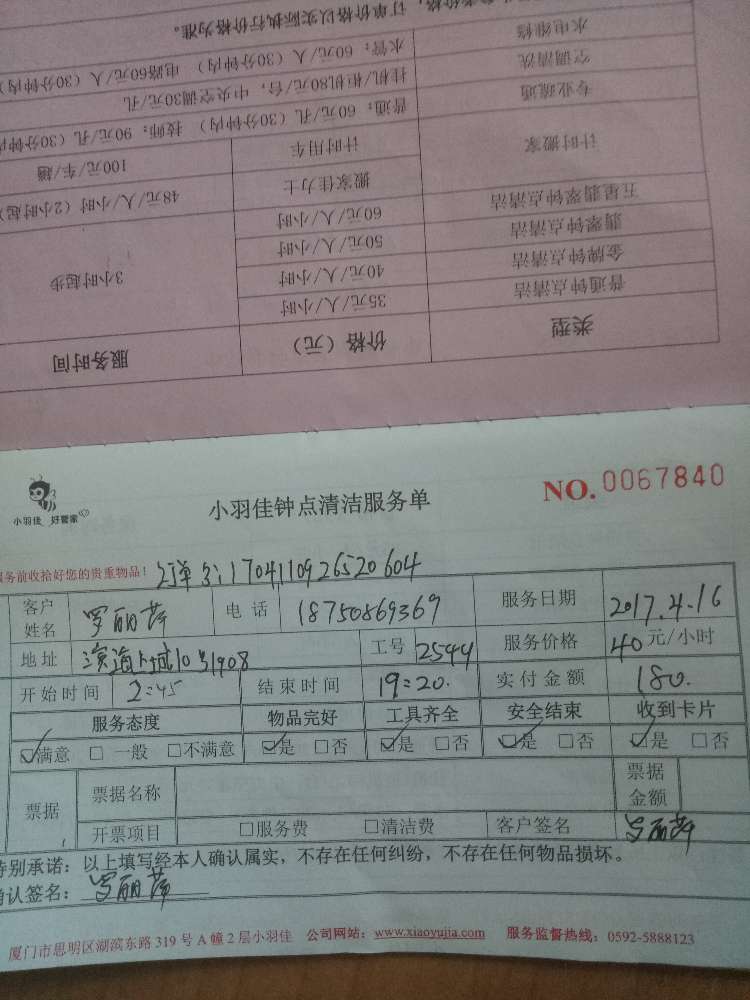 类型 价格（元） 服务时间
普通钟点清洁 35元/人/小时 3小时起步
金牌钟点清洁 40元/人/小时
翡翠钟点清洁 50元/人/小时
五星翡翠钟点清洁 60元/人/小时
计时搬家 搬家佳力士 48元/人/小时（2小时起）
计时用车 100元/车/趟
专业疏通 普通：60元/孔（30分钟内） 技师：90元/孔（30分钟内
空调清洗 挂机/柜机80元/台，中央空调30元/孔
水电维修 水管：60元/人（30分钟内） 电路60元/人（30分钟内）
订单价格以实际执行价格为准。
小羽佳 好管家
小羽佳钟点清洁服务单
NO. 0067840
务前收拾好您的贵重物品！ 订单号:1704110926520604
客户姓名 罗丽萍 电话 18750869369 服务日期 2017.4.16
地址 滨海上城10号1908 工号 2544 服务价格 40元/小时
开始时间 2:45 结束时间 19:20. 实付金额 180.
服务态度 物品完好 工具齐全 安全结束 收到卡片
☑满意 □一般 □不满意 ☑是 □否 ☑是 □否 ☑是 □否 ☑是 □否
票据 票据名称 票据金额
开票项目 □服务费 □清洁费 客户签名 罗丽萍
特别承诺：以上填写经本人确认属实，不存在任何纠纷，不存在任何物品损坏。
确认签名：罗丽萍
厦门市思明区湖滨东路319号A幢2层小羽佳 公司网站：www.xiaoyujia.com 服务监督热线：0592-5888123